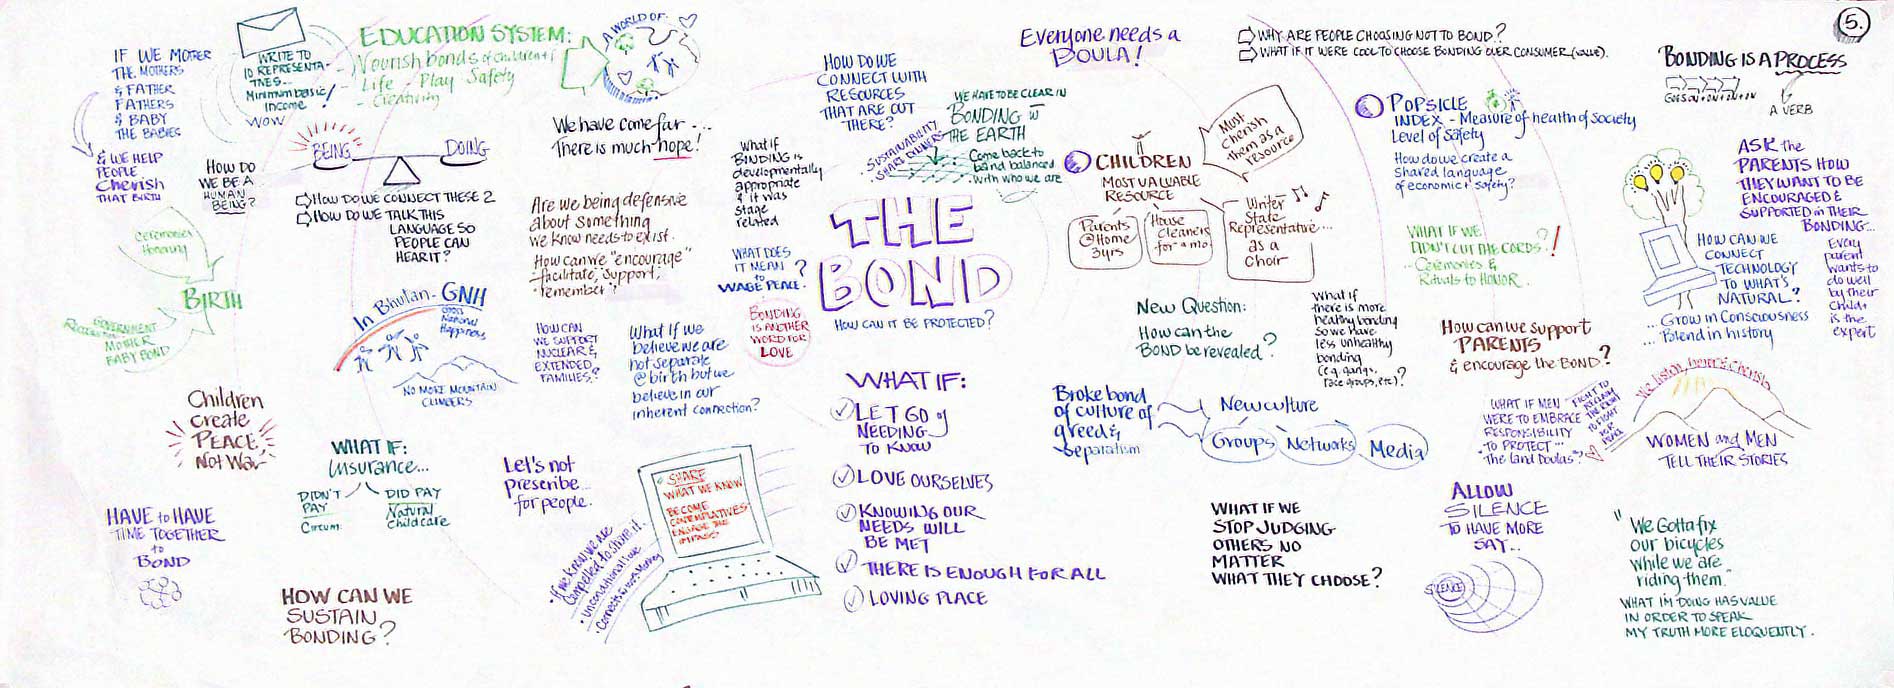 5.
IF WE MOTHER
THE MOTHERS
& FATHER
FATHERS
& BABY
THE BABIES
& WE HELP
PEOPLE
Cherish
THAT BIRTH
WRITE TO
10 REPRESENTA-
TIVES...
Minimum basic
income !
WOW
EDUCATION SYSTEM:
- Nourish bonds of children +
Life - Play Safety
- Creativity
A WORLD OF:
BEING
DOING
HOW DO WE CONNECT THESE 2
HOW DO WE TALK THIS
LANGUAGE SO
PEOPLE CAN
HEAR IT?
HOW DO
WE BE A
HUMAN
BEING?
Ceremonies
Honoring
BIRTH
GOVERNMENT
MOTHER
BABY BOND
In Bhutan - GNH
Gross
National
Happiness
NO MORE MOUNTAIN
CLIMBERS
Children
create
PEACE,
Not War
WHAT IF:
Insurance...
DIDN'T
PAY
Circum.
DID PAY
Natural
Childcare
HAVE to HAVE
TIME TOGETHER
to
BOND
HOW CAN WE
SUSTAIN
BONDING?
We have come far -...
There is much hope!
Are we being defensive
about something
we know needs to exist.
How can we "encourage"
- facilitate, support,
remember?
HOW CAN
WE SUPPORT
NUCLEAR &
EXTENDED
FAMILIES?
What if we
believe we are
not separate
@ birth but we
believe in our
inherent connection?
Let's not
prescribe...
for people.
SHARE
WHAT WE KNOW
BECOME
CONTEMPLATIVES
ENGAGE THE
If we know we are
compelled to share it.
• unconditional love
• Connects & costs Money
What if
BINDING is
developmentally
appropriate
& it was
stage
related
WHAT DOES
IT MEAN
to
WAGE PEACE?
BONDING
IS ANOTHER
WORD FOR
LOVE
HOW DO WE
CONNECT WITH
RESOURCES
THAT ARE OUT
THERE?
WE HAVE TO BE CLEAR IN
BONDING w
THE EARTH
SUSTAINABILITY
SHARE OWNERS
Come back to
band balanced
with who we are
THE
BOND
HOW CAN IT BE PROTECTED?
WHAT IF:
LET GO of
NEEDING
TO KNOW
LOVE OURSELVES
KNOWING OUR
NEEDS WILL
BE MET
THERE IS ENOUGH FOR ALL
LOVING PLACE
Everyone needs a
BOULA!
CHILDREN
MOST VALUABLE
RESOURCE
Must
Cherish
them as a
resource
Parents
@ Home
3yrs
House
Cleaners
for a mo
Writer
State
Representative...
as a
Choir
New Question:
How can the
BOND be revealed?
Broke bond
of culture of
greed &
Separatism
New culture
Groups
Networks
Media
WHAT IF WE
STOP JUDGING
OTHERS NO
MATTER
WHAT THEY CHOOSE?
WHY ARE PEOPLE CHOOSING NOT TO BOND?
WHAT IF IT WERE COOL TO CHOOSE BONDING OVER CONSUMER (VALUE).
POPSICLE
INDEX - Measure of health of society
Level of Safety
How do we create a
shared language
of economic + safety?
WHAT IF WE
DIDN'T CUT THE CORDS?!
... Ceremonies &
Rituals to HONOR.
What if
there is more
healthy bonding
so we have
less unhealthy
bonding
(e.g. gangs,
race groups, etc)?
How can we support
PARENTS
& encourage the BOND?
WHAT IF MEN
WERE TO EMBRACE
RESPONSIBILITY
TO PROTECT...
"The Land Doulas"?
ALLOW
SILENCE
TO HAVE MORE
SAY...
SILENCE
BONDING IS A PROCESS
GOES ON + ON + ON + ON
A VERB
ASK the
PARENTS HOW
THEY WANT TO BE
ENCOURAGED &
SUPPORTED in THEIR
BONDING...
Every
parent
wants to
do well
by their
child +
is the
expert
HOW CAN WE
CONNECT
TECHNOLOGY
TO WHAT'S
NATURAL?
... Grow in Consciousness
... Blend in history
WOMEN and MEN
TELL THEIR STORIES
"We Gotta fix
our bicycles
while we are
riding them."
WHAT I'M DOING HAS VALUE
IN ORDER TO SPEAK
MY TRUTH MORE ELOQUENTLY.